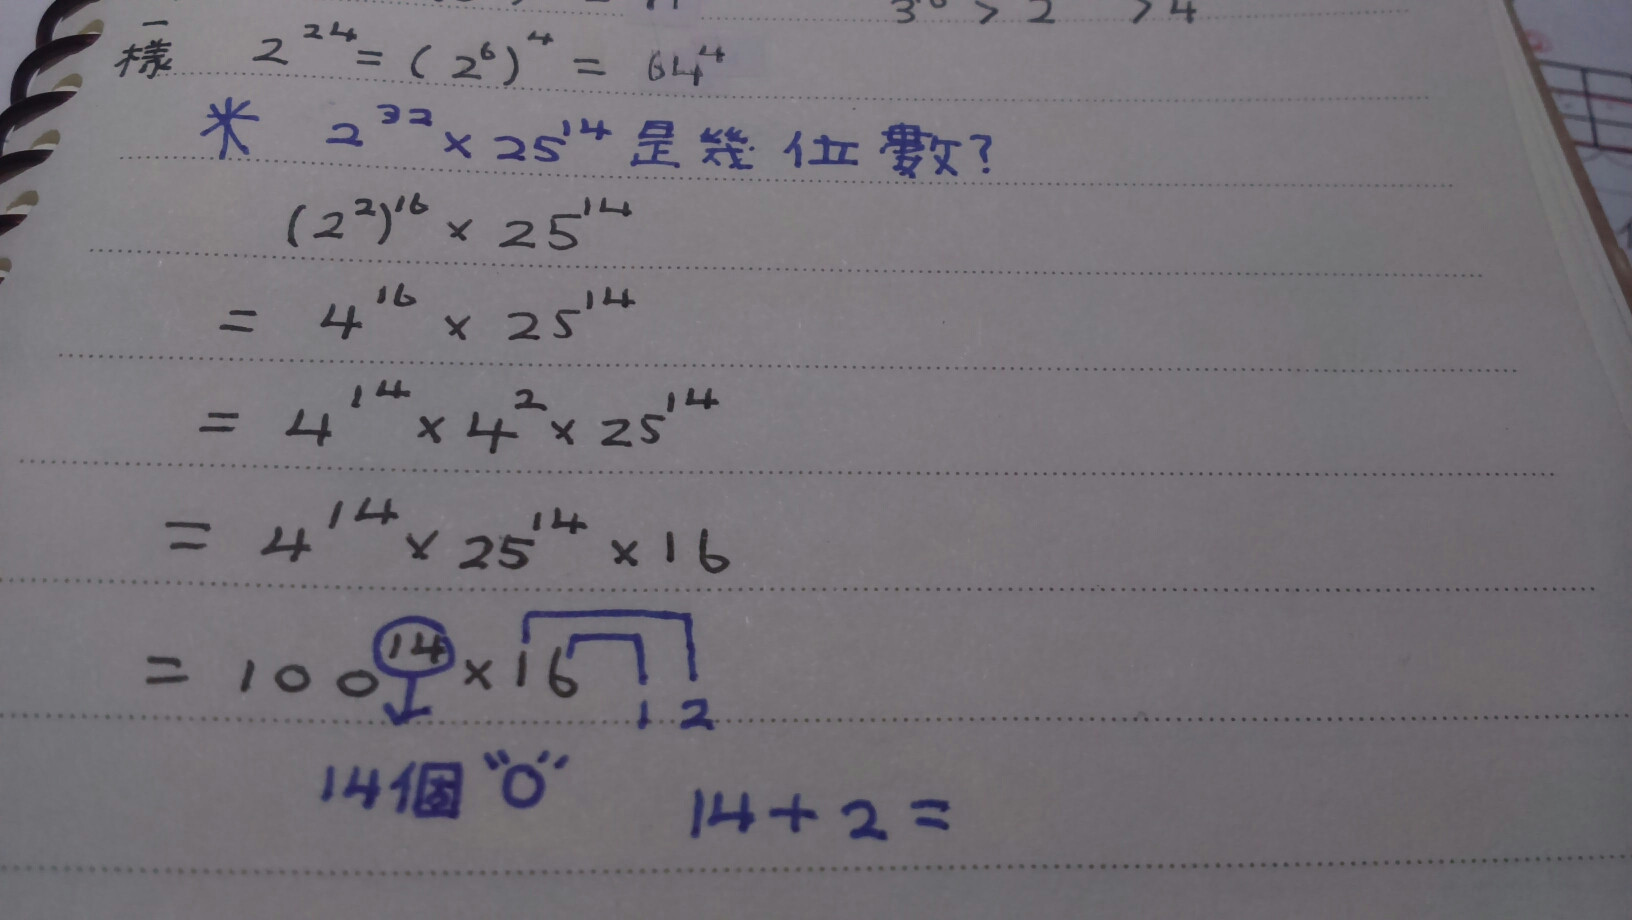 3 > 2 > 4
一樣 2^24 = (2^6)^4 = 64^4
米 2^32 × 25^14 是幾位數?
(2^2)^16 × 25^14
= 4^16 × 25^14
= 4^14 × 4^2 × 25^14
= 4^14 × 25^14 × 16
= 100^14 × 16
1 2
14個 "0" 14 + 2 =